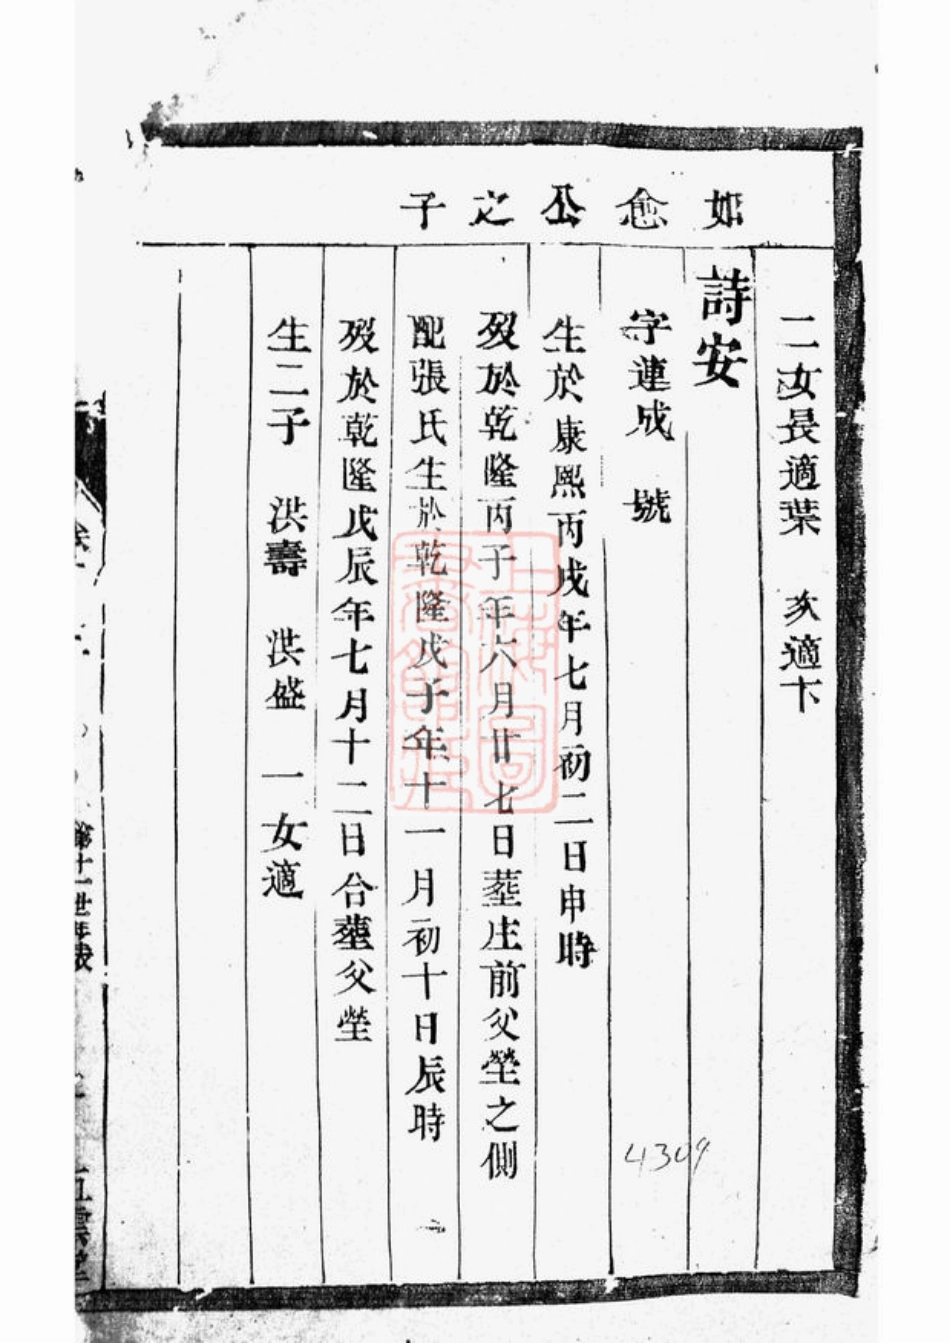 如愈公之子
二女長適葉 次適卞
詩安
字連成 號
生於康熙丙戌年七月初二日申時
歿於乾隆丙子年六月廿七日塟庄前父塋之側
配張氏生於乾隆戊子年十一月初十日辰時
歿於乾隆戊辰年七月十二日合塟父塋
生二子 洪壽 洪盛 一女適
第十一世年表
五雲堂
4309